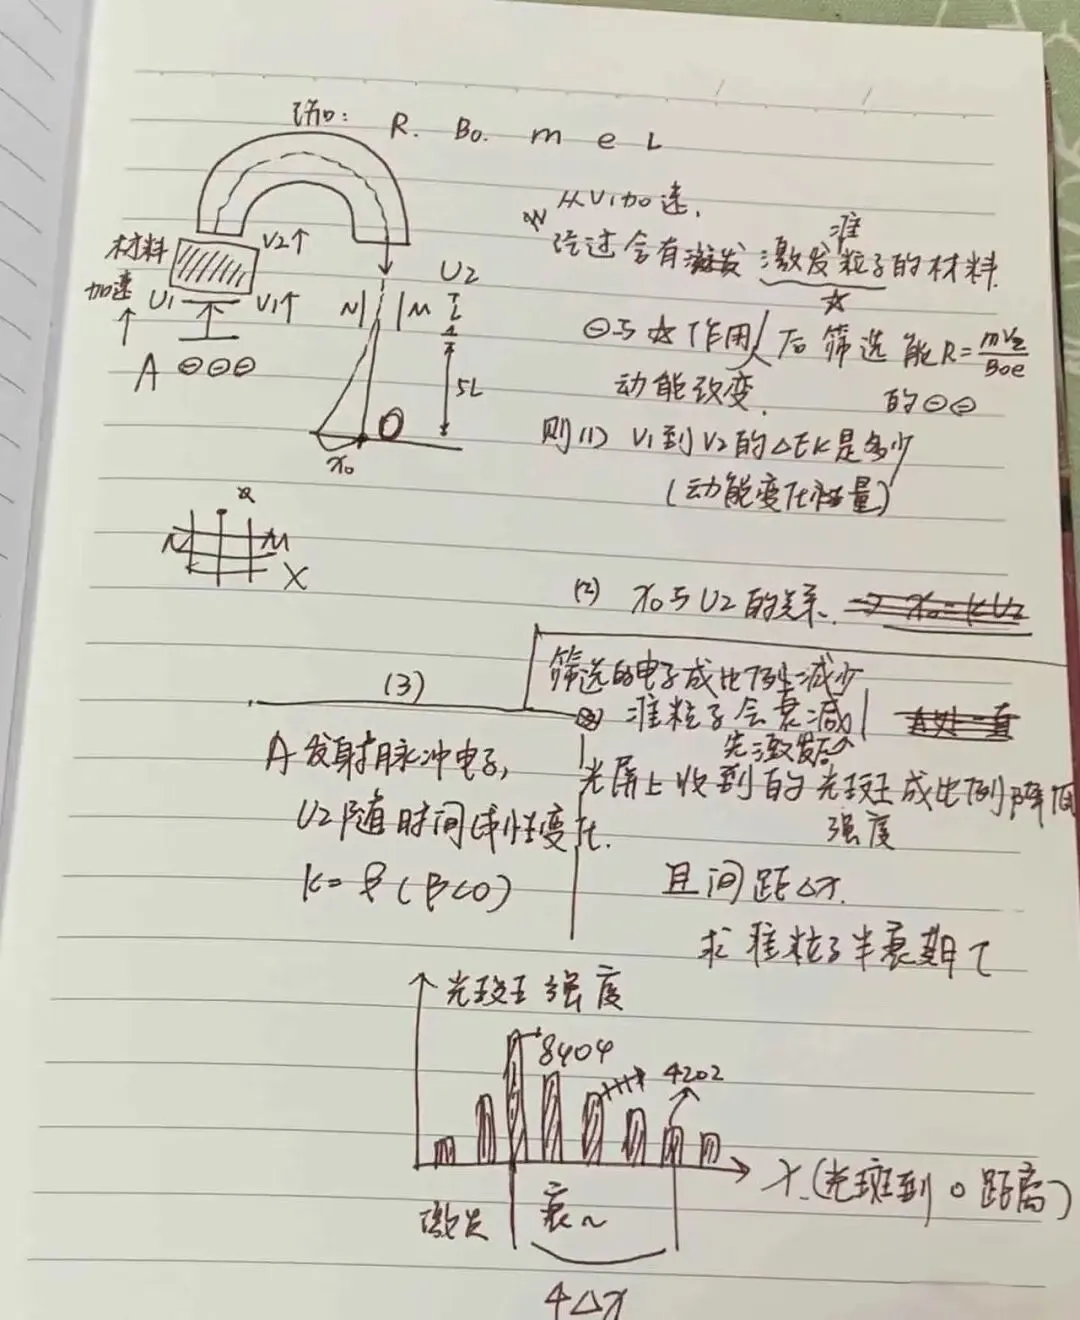 已知: R. B₀. m e L
从U₁加速,
经过会有激发准粒子的材料.
材料
加速
U₁
V₂↑
V₁↑
A ⊖⊖⊖
U₂
N M
L
L
5L
O
x₀
⊖与☆作用后筛选能R=mV₂/B₀e
动能改变. 的⊖⊖
则(1) V₁到V₂的ΔEK是多少
(动能变化量)
N M
X
(2) x₀与U₂的关系. → x₀=kU₂
(3)
筛选的电子成比例减少
准粒子会衰减
先激发后
A发射脉冲电子,
光屏上收到的光斑成比例降低
强度
U₂随时间线性变化.
k=β(β<0)
且间距Δx.
求准粒子半衰期τ
光斑强度
8404
4202
x.(光斑到O距离)
激发
衰~
4Δx